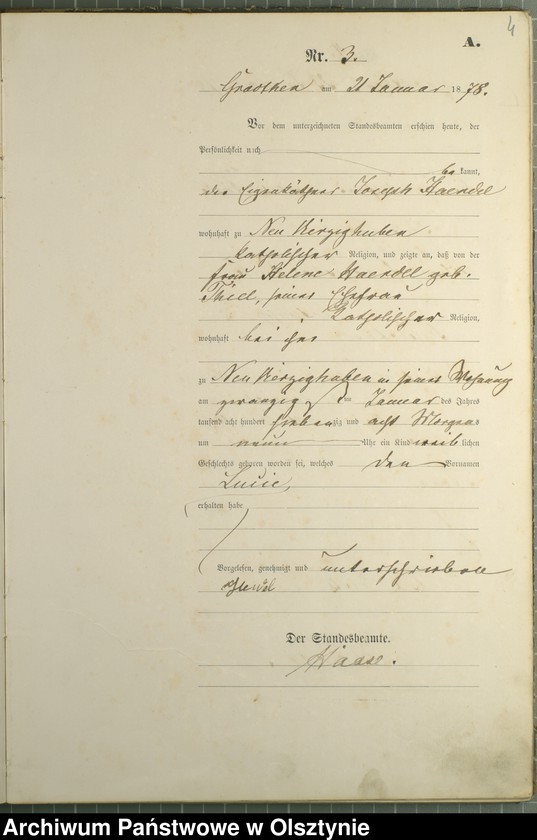 4
A.
Nr. 3.
am 21 Januar 1878.
Vor dem unterzeichneten Standesbeamten erschien heute, der
Persönlichkeit nach
bekannt,
der Eigenkäthner Joseph Haendel
wohnhaft zu Neu Vierzighuben
katholischer Religion, und zeigte an, daß von der
Frau Helene Haendel geb.
Thiel, seiner Ehefrau
katholischer Religion,
wohnhaft bei ihm
zu Neu Vierzighuben in seiner Wohnung
am zwanzigsten Januar des Jahres
tausend acht hundert siebenzig und acht Morgens
um neun Uhr ein Kind weiblichen
Geschlechts geboren worden sei, welches den Vornamen
Lucie,
erhalten habe
Vorgelesen, genehmigt und unterschrieben
Der Standesbeamte.
Haase.
Archiwum Państwowe w Olsztynie